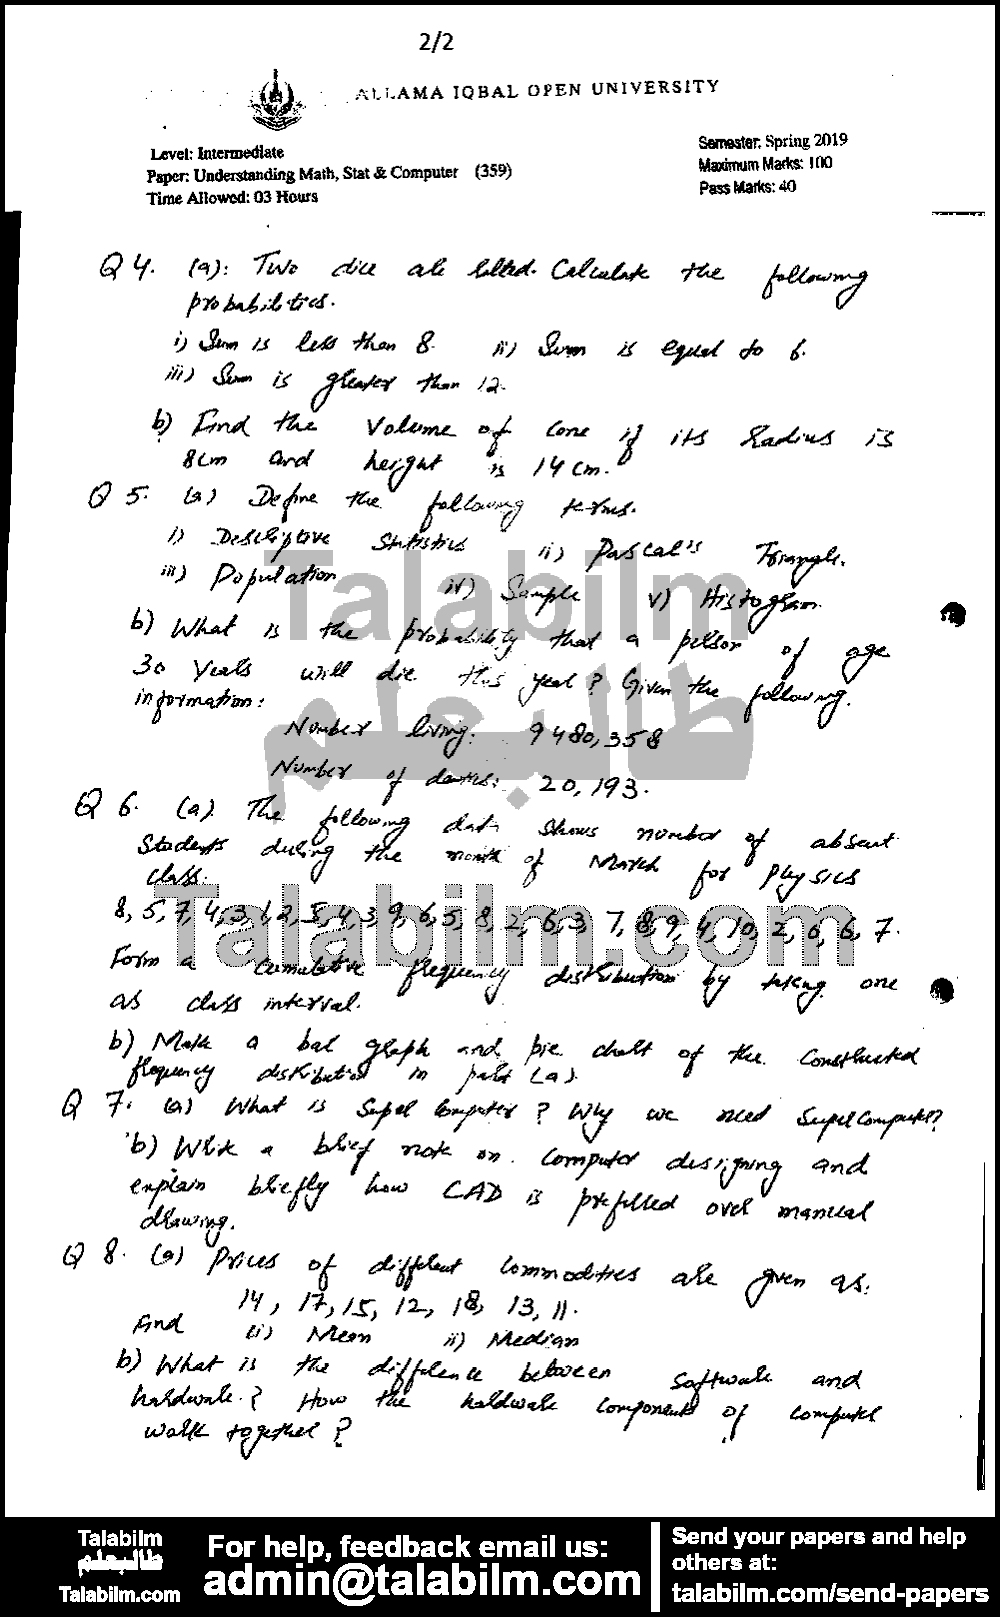 2/2
ALLAMA IQBAL OPEN UNIVERSITY
Level: Intermediate
Paper: Understanding Math, Stat & Computer (359)
Time Allowed: 03 Hours
Semester: Spring 2019
Maximum Marks: 100
Pass Marks: 40
Q 4. (a): Two dice are rolled. Calculate the following
probabilities.
i) Sum is less than 8. ii) Sum is equal to 6.
iii) Sum is greater than 12.
b) Find the volume of cone if its radius is
8cm and height is 14cm.
Q 5. (a) Define the following terms.
i) Descriptive Statistics ii) Pascal's Triangle.
iii) Population iv) Sample v) Histogram.
b) What is the probability that a person of age
30 years will die this year? Given the following
information:
Number living: 9480,358
Number of deaths: 20,193.
Q 6. (a) The following data shows number of absent
students during the month of March for physics
class.
8, 5, 7, 4, 3, 1, 2, 5, 4, 3, 9, 6, 5, 8, 2, 6, 3, 7, 8, 9, 4, 10, 2, 6, 6, 7.
Form a cumulative frequency distribution by taking one
as class interval.
b) Make a bar graph and pie chart of the constructed
frequency distribution in part (a).
Q 7. (a) What is Super Computer? Why we need SuperComputer?
b) Write a brief note on computer designing and
explain briefly how CAD is preferred over manual
drawing.
Q 8. (a) Prices of different commodities are given as:
14, 17, 15, 12, 18, 13, 11.
Find (i) Mean ii) Median
b) What is the difference between software and
hardware? How the hardware components of computer
work together?
Talabilm
طالبعلم
Talabilm.com
Talabilm
طالبعلم
Talabilm.com
For help, feedback email us:
admin@talabilm.com
Send your papers and help
others at:
talabilm.com/send-papers